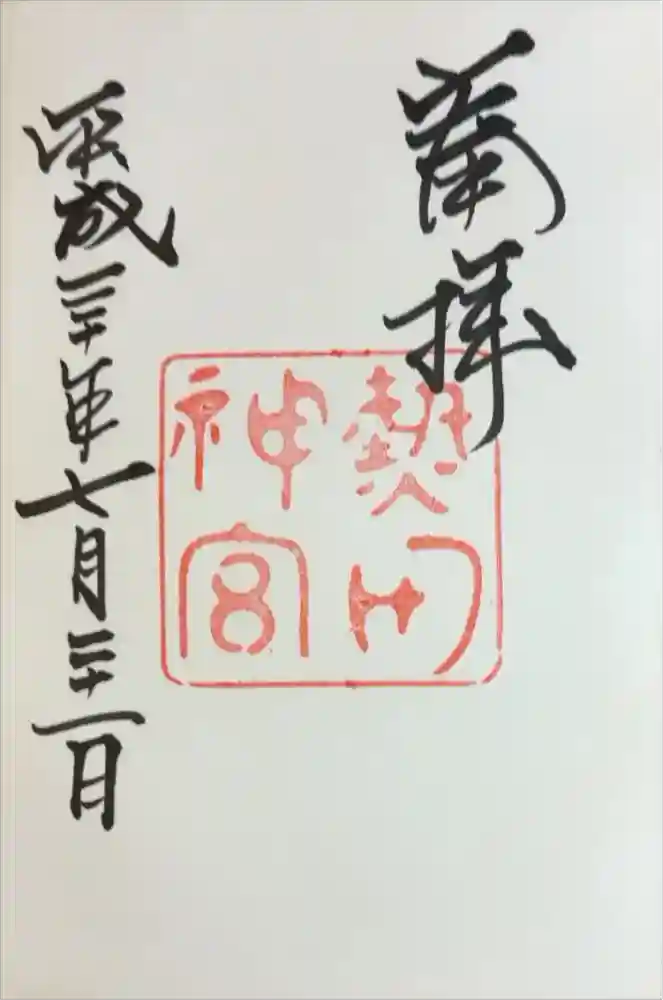 拝
熱田
神宮
平成三十年七月二十一日